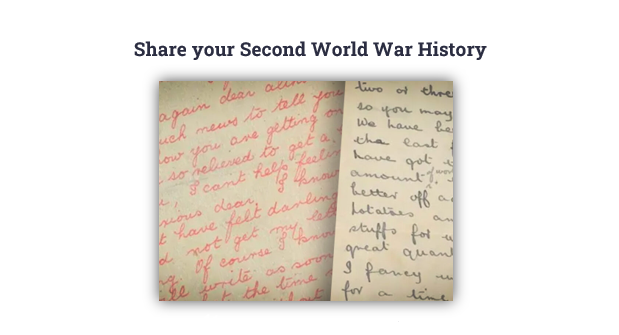 Share your Second World War History
again dear
uch news to tell you
ow you are getting on
so relieved to get a
I can't help feeli
xious dear, I know
t have felt darling
d not get my lett
ng. Of course I know
ll write as soon
t the time
two or three
so you may
We have
the last
have got
amount of
better off a
potatoes an
stuffs for u
great quan
I fancy
for a time